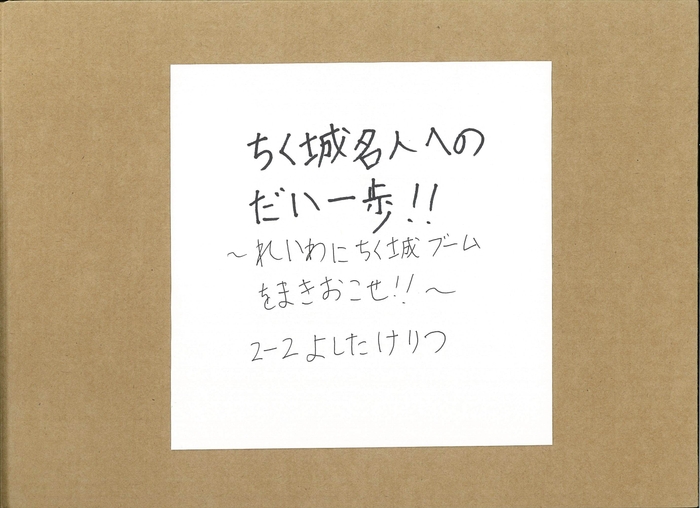 ちく城名人への
だい一歩!!
~れいわにちく城ブーム
をまきおこせ!!~
2-2よしたけりつ